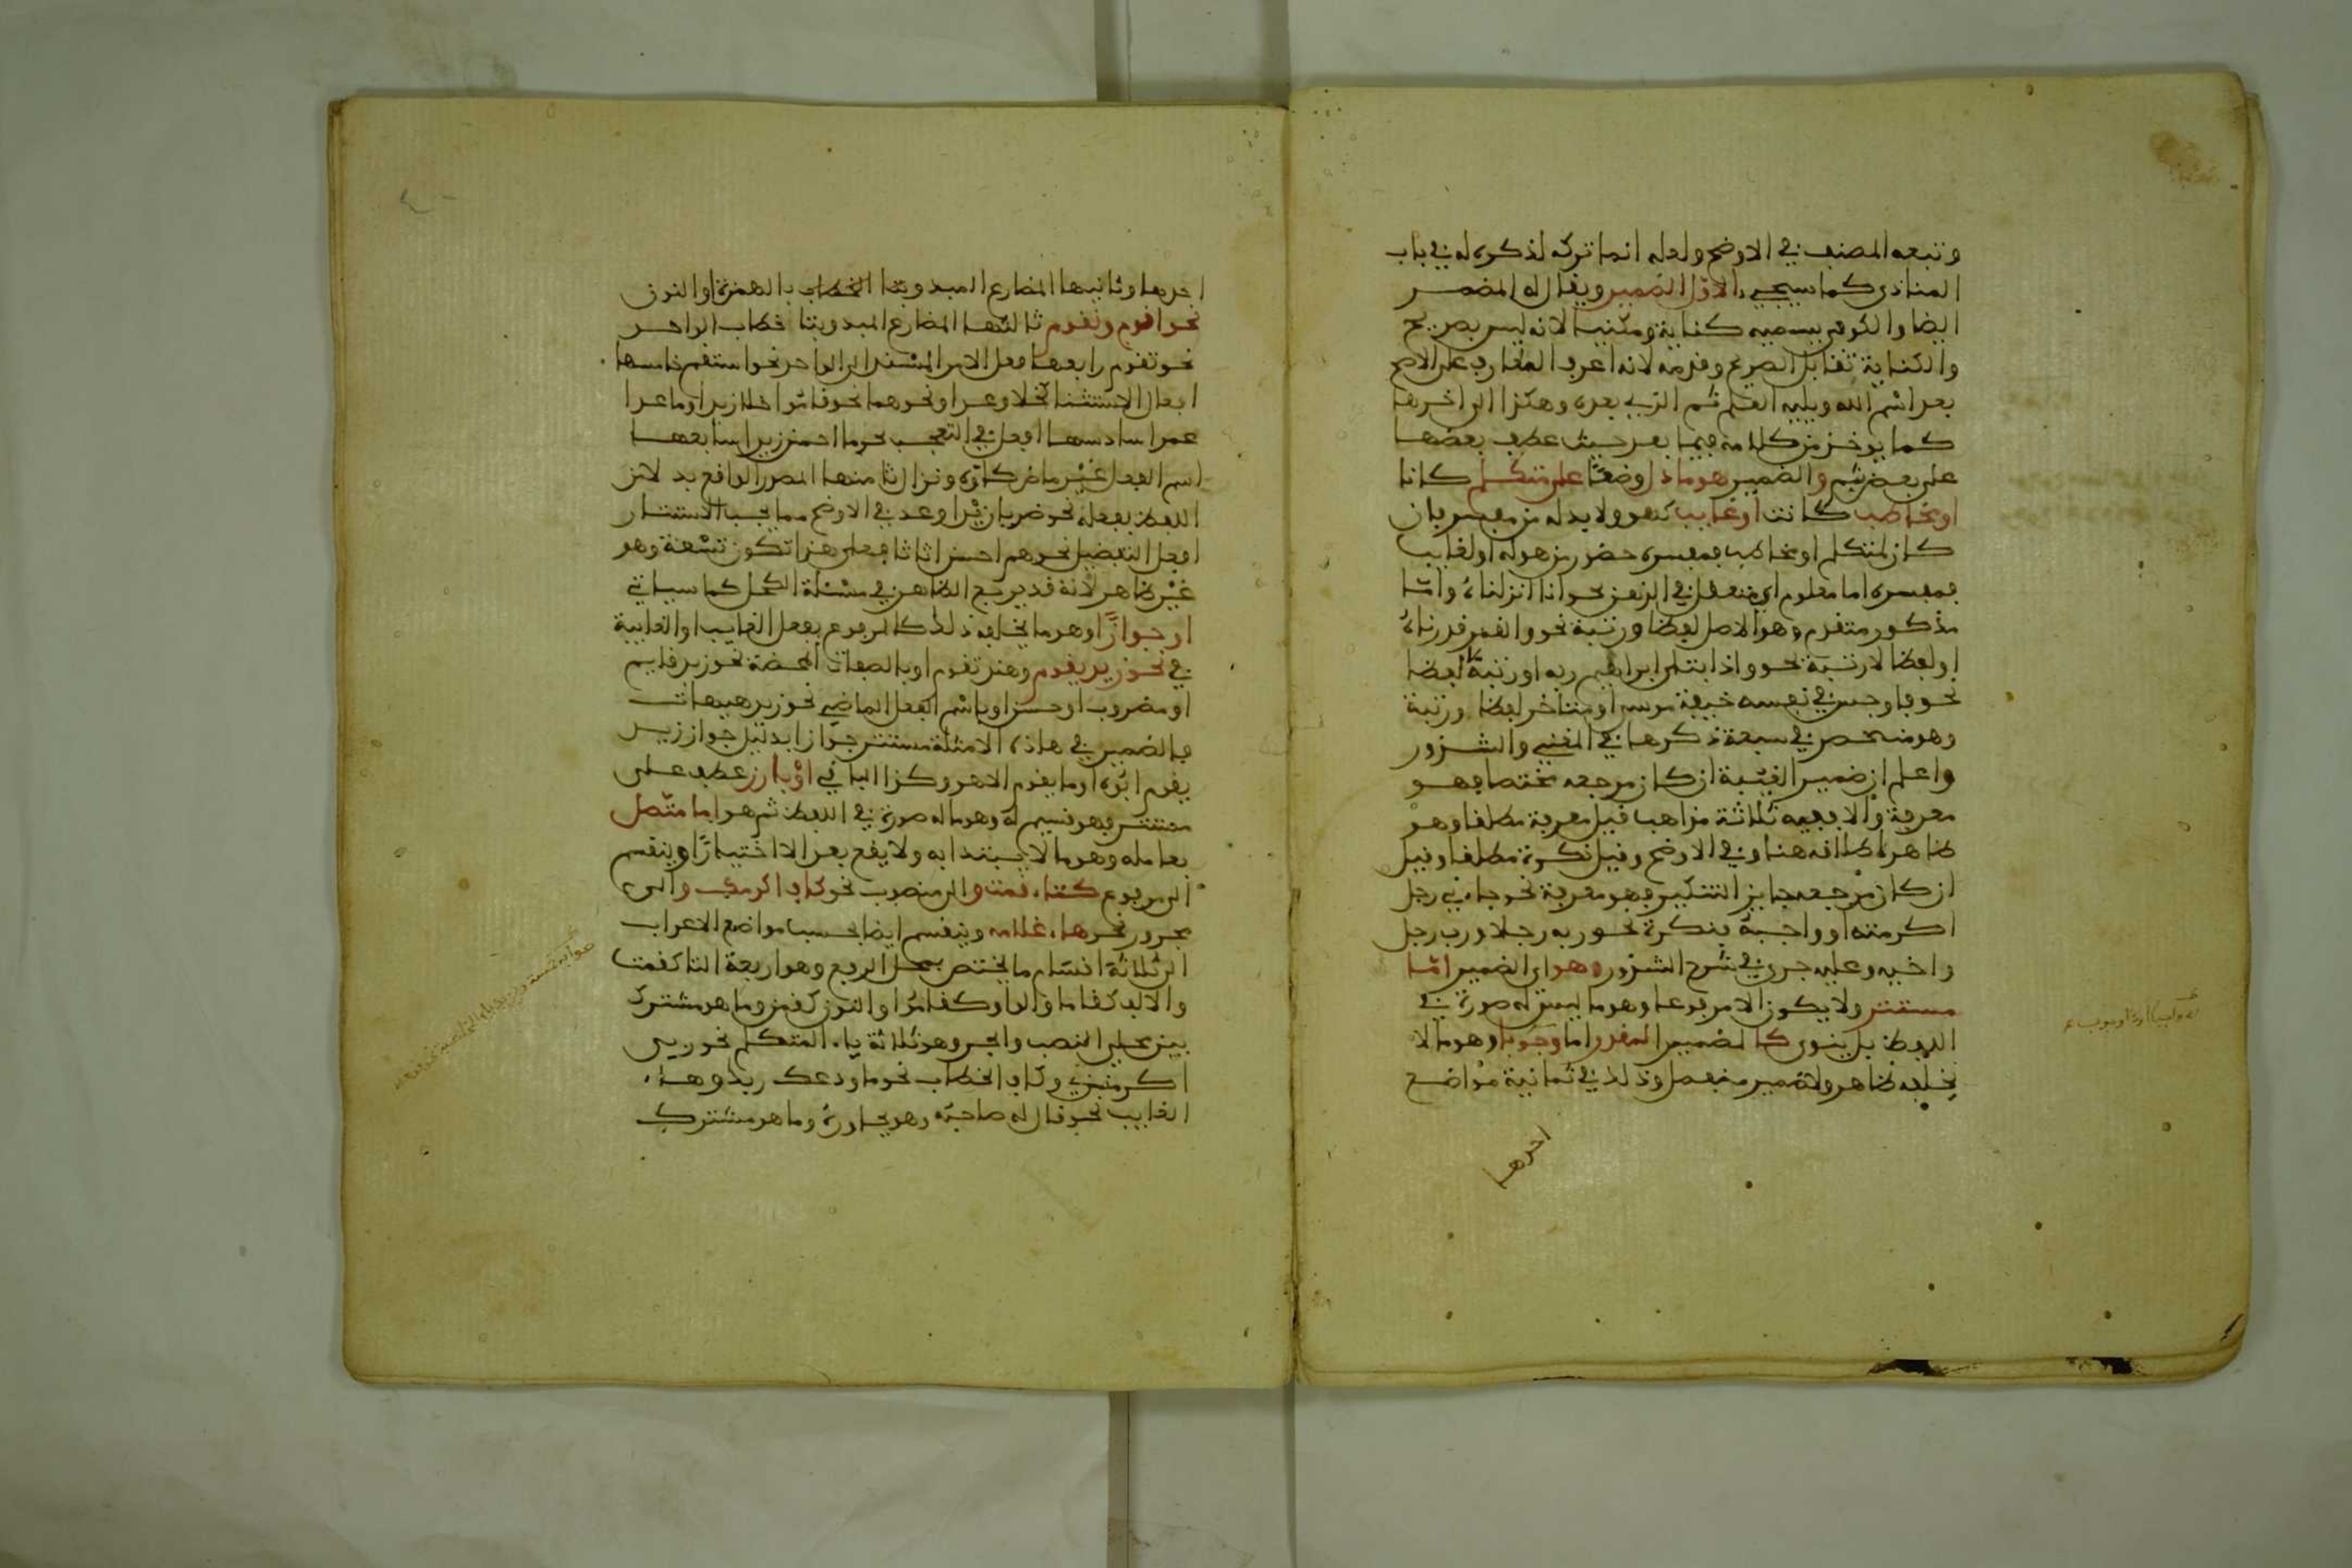 وتبعه المصنف في الاوضح ولعله انما تركه لذكره له في باب
المنادى كما سيجيء الاول الضمير ويقال له المضمر
ايضا والكوفي يسميه كناية ومكنيا لانه ليس بصريح
والكناية تقابل الصريح وقدمه لانه اعرف المعارف على الاصح
بعد اسم الله ويليه العلم ثم الذي بعده وهكذا الى اخرها
كما يوخذ من كلامه فيما بعد حيث عطف بعضها
على بعض بثم والضمير هو ما دل وضعا على متكلم كانا
او مخاطب كانت او غايب كهو ولا بد له من مفسر فان
كان لمتكلم او مخاطب فمفسره حضور من هو له او لغايب
فمفسره اما معلوم اي متعقل في الذهن نحو انا انزلناه واما
مذكور متقدم وهو الاصل لفظا ورتبة نحو والقمر قدرناه
او لفظا لا رتبة نحو واذ ابتلى ابراهيم ربه او رتبة لا لفظا
نحو فاوجس في نفسه خيفة موسى او متاخر لفظا ورتبة
وهو منحصر في سبعة ذكرها في المغني والشذور
واعلم ان ضمير الغيبة ان كان مرجعه مختصا فهو
معرفة والا ففيه ثلاثة مذاهب قيل معرفة مطلقا وهو
ظاهر اطلاقه هنا وفي الاوضح وقيل نكرة مطلقا وقيل
ان كان مرجعه جايز التنكير فهو معرفة نحو جاءني رجل
اكرمته او واجبه فنكرة نحو ربه رجلا ورب رجل
واخيه وعليه جرى في شرح الشذور وهو اي الضمير اما
مستتر ولا يكون الا مرفوعا وهو ما ليس له صورة في
اللفظ بل ينوى كالضمير المقدر اما وجوبا وهو ما لا
يخلفه ظاهر ولا ضمير منفصل وذلك في ثمانية مواضع
احدها
احدها وثانيها المضارع المبدو بتا الخطاب بالهمزة او النون
نحو اقوم ونقوم ثالثها المضارع المبدو بتا خطاب الواحد
نحو تقوم رابعها فعل الامر المسند الى الواحد نحو استقم خامسها
افعال الاستثنا كخلا وعدا ونحوهما نحو قاموا خلا زيدا وما عدا
عمرا سادسها افعل في التعجب نحو ما احسن زيدا سابعها
اسم الفعل غير ماض كاوه ونزال ثامنها المصدر الواقع بدلا من
اللفظ بفعله نحو ضربا زيدا وعد في الاوضح مما يجب الاستتار
افعل التفضيل نحو هم احسن اثاثا فعلى هذا تكون تسعة وهو
غير ظاهر لانه قد يرفع الظاهر في مسئلة الكحل كما سياتي
او جوازا وهو ما يخلفه ذلك كالمرفوع بفعل الغايب او الغايبة
في نحو زيد يقوم وهند تقوم او بالصفات المحضة نحو زيد قايم
او مضروب او حسن او باسم الفعل الماضي نحو زيد هيهات
فالضمير في هاذه الامثلة مستتر جوازا بدليل جواز زيد
يقوم ابوه او ما يقوم الا هو وكذا الباقي او بارز عطف على
مستتر فهو قسيم له وهو ما له صورة في اللفظ ثم هو اما متصل
بعامله وهو ما لا يبتدا به ولا يقع بعد الا اختيارا وينقسم
الى مرفوع كتاء قمت والى منصوب نحو كاف اكرمك والى
مجرور نحو هاء غلامه وينقسم ايضا بحسب مواضع الاعراب
الى ثلاثة اقسام ما يختص بمحل الرفع وهو اربعة التا كقمت
والالف كقاما والواو كقاموا والنون كقمن وما هو مشترك
بين محلي النصب والجر وهو ثلاثة ياء المتكلم نحو ربي
اكرمني وكاف الخطاب نحو ما ودعك ربك وهاء
الغايب نحو قال له صاحبه وهو يحاوره وما هو مشترك